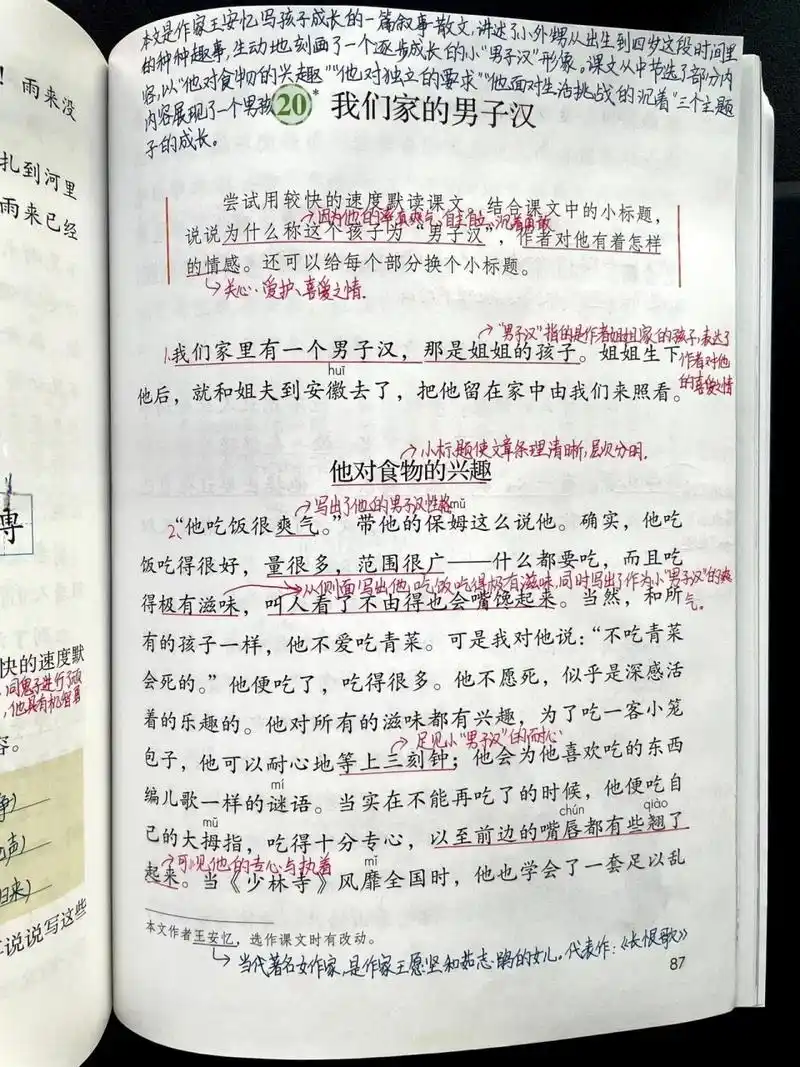 ！雨来没
扎到河里
雨来已经
傅
快的速度默
同鬼子进行了
他具有机智勇
容。
争）
声）
归来）
说说写这些
本文是作家王安忆写孩子成长的一篇叙事散文,讲述了小外甥从出生到四岁这段时间里
的种种趣事,生动地刻画了一个逐步成长的小“男子汉”形象。课文从中节选了部分内
容,以“他对食物的兴趣”“他对独立的要求”“他面对生活挑战的沉着”三个主题
内容展现了一个男孩
子的成长。
20* 我们家的男子汉
尝试用较快的速度默读课文。结合课文中的小标题，
因为他的率真爽气、自主自立、沉着勇敢
说说为什么称这个孩子为“男子汉”，作者对他有着怎样
的情感。还可以给每个部分换个小标题。
关心、爱护、喜爱之情.
“男子汉”指的是作者姐姐家的孩子,表达了
作者对他
的喜爱之情
1.我们家里有一个男子汉，那是姐姐的孩子。姐姐生下
huī
他后，就和姐夫到安徽去了，把他留在家中由我们来照看。
小标题使文章条理清晰,层次分明.
他对食物的兴趣
写出了他的男子汉性格
mǔ
2.“他吃饭很爽气。”带他的保姆这么说他。确实，他吃
饭吃得很好，量很多，范围很广——什么都要吃，而且吃
从侧面写出他吃饭吃得极有滋味,同时写出了作为小“男子汉”的爽
气。
得极有滋味，叫人看了不由得也会嘴馋起来。当然，和所
有的孩子一样，他不爱吃青菜。可是我对他说：“不吃青菜
会死的。”他便吃了，吃得很多。他不愿死，似乎是深感活
着的乐趣的。他对所有的滋味都有兴趣，为了吃一客小笼
足见小“男子汉”的耐心
包子，他可以耐心地等上三刻钟；他会为他喜欢吃的东西
mí
编儿歌一样的谜语。当实在不能再吃了的时候，他便吃自
mǔ chún qiào
己的大拇指，吃得十分专心，以至前边的嘴唇都有些翘了
可见他的专心与执着
mǐ
起来。当《少林寺》风靡全国时，他也学会了一套足以乱
本文作者王安忆，选作课文时有改动。
当代著名女作家,是作家王愿坚和茹志鹃的女儿。代表作:《长恨歌》
87